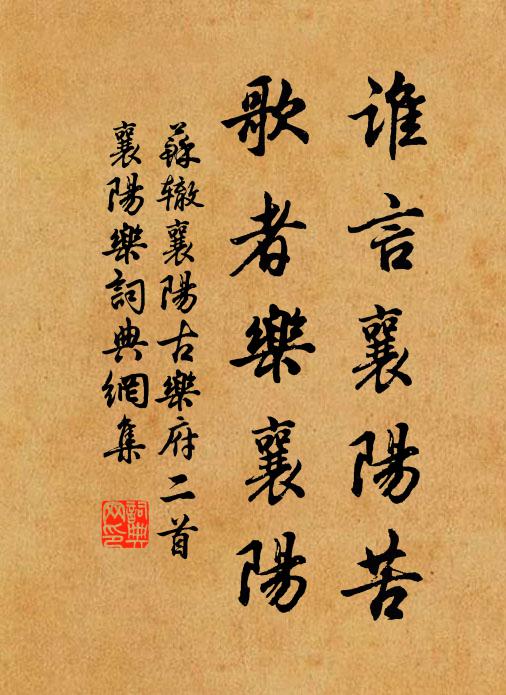 谁言襄陽苦
歌者樂襄陽
蘇辙襄陽古樂府二首
襄陽樂詞典網集
詞典网印